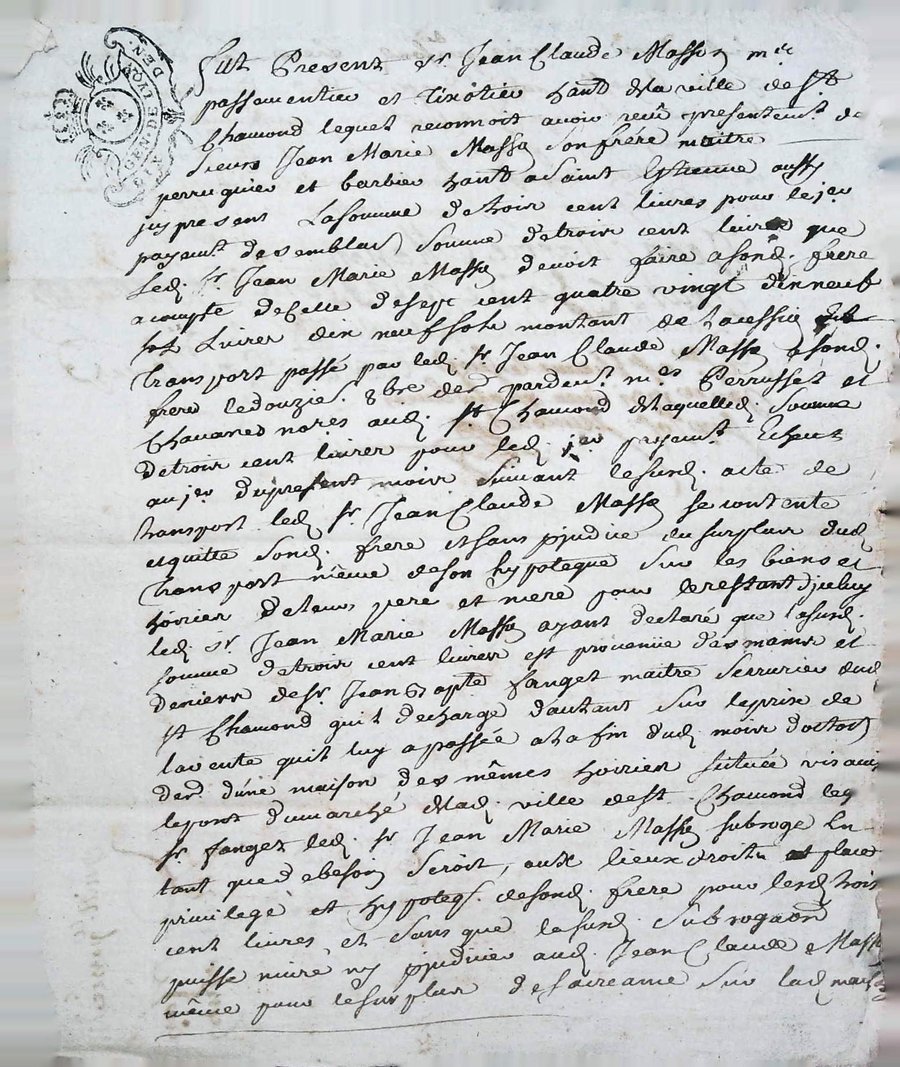 GEN. DE LYON. DEN.
Fut Present Sr. Jean Claude Masson mtre
passementier et Tixotier hant. dela ville de St
Chamond lequel reconnoit avoir reçû presentemt. de
Sieur Jean Marie Masson son frére maitre
perruquier et barbier hant. a Saint Estienne aussy
jcy present La somme de trois cent livres pour le jer
payemt. de semblable somme de trois cent livres que
Led. Sr. Jean Marie Masson devoit faire a sond. frére
a compte de Celle de sept cent quatre vingt dix neuf
Livres dix neuf sols montant de la cession
transport passé par led. Sr. Jean Claude Masson a sond.
frére le douzie. 8bre der. pardevt. mes Perrusset et
Chavanes nores. aud. St Chamond de laquelle d. somme
de trois cent livres pour led. jer payemt. Echeut
au jer du present mois suivant le susd. acte de
transport led. Sr. Jean Claude Masson se contente
et quitte sond. frére et sans pjudice du surplus dud.
transport même de son hypoteque sur les biens et
hoiries de leurs pere et mere pour le restant d'jceluy
led. Sr. Jean Marie Masson ayant declaré que la susd.
somme de trois cent livres est provenüe des mains et
deniers de Sr. Jean Bapte. fanget maitre Serrurier dud.
St Chamond qu'il decharge d'autant sur le prix de
la vente qu'il luy a passée a la fin dud. mois d'octob.
der. d'une maison des mêmes hoiries située vis avis
le pont du marché de lad. ville de St. Chamond leq
Sr fanget led. Sr Jean Marie Masson subroge En
tant que de besoin seroit, aux lieux droits et place
privilege et hypoteq. de sond. frére pour lesd. trois
cent livres, et sans que la susd. subrogaon
puisse nuire ny pjudicier aud. Jean Claude Masson
même pour le surplus de sa creance sur lad. maison